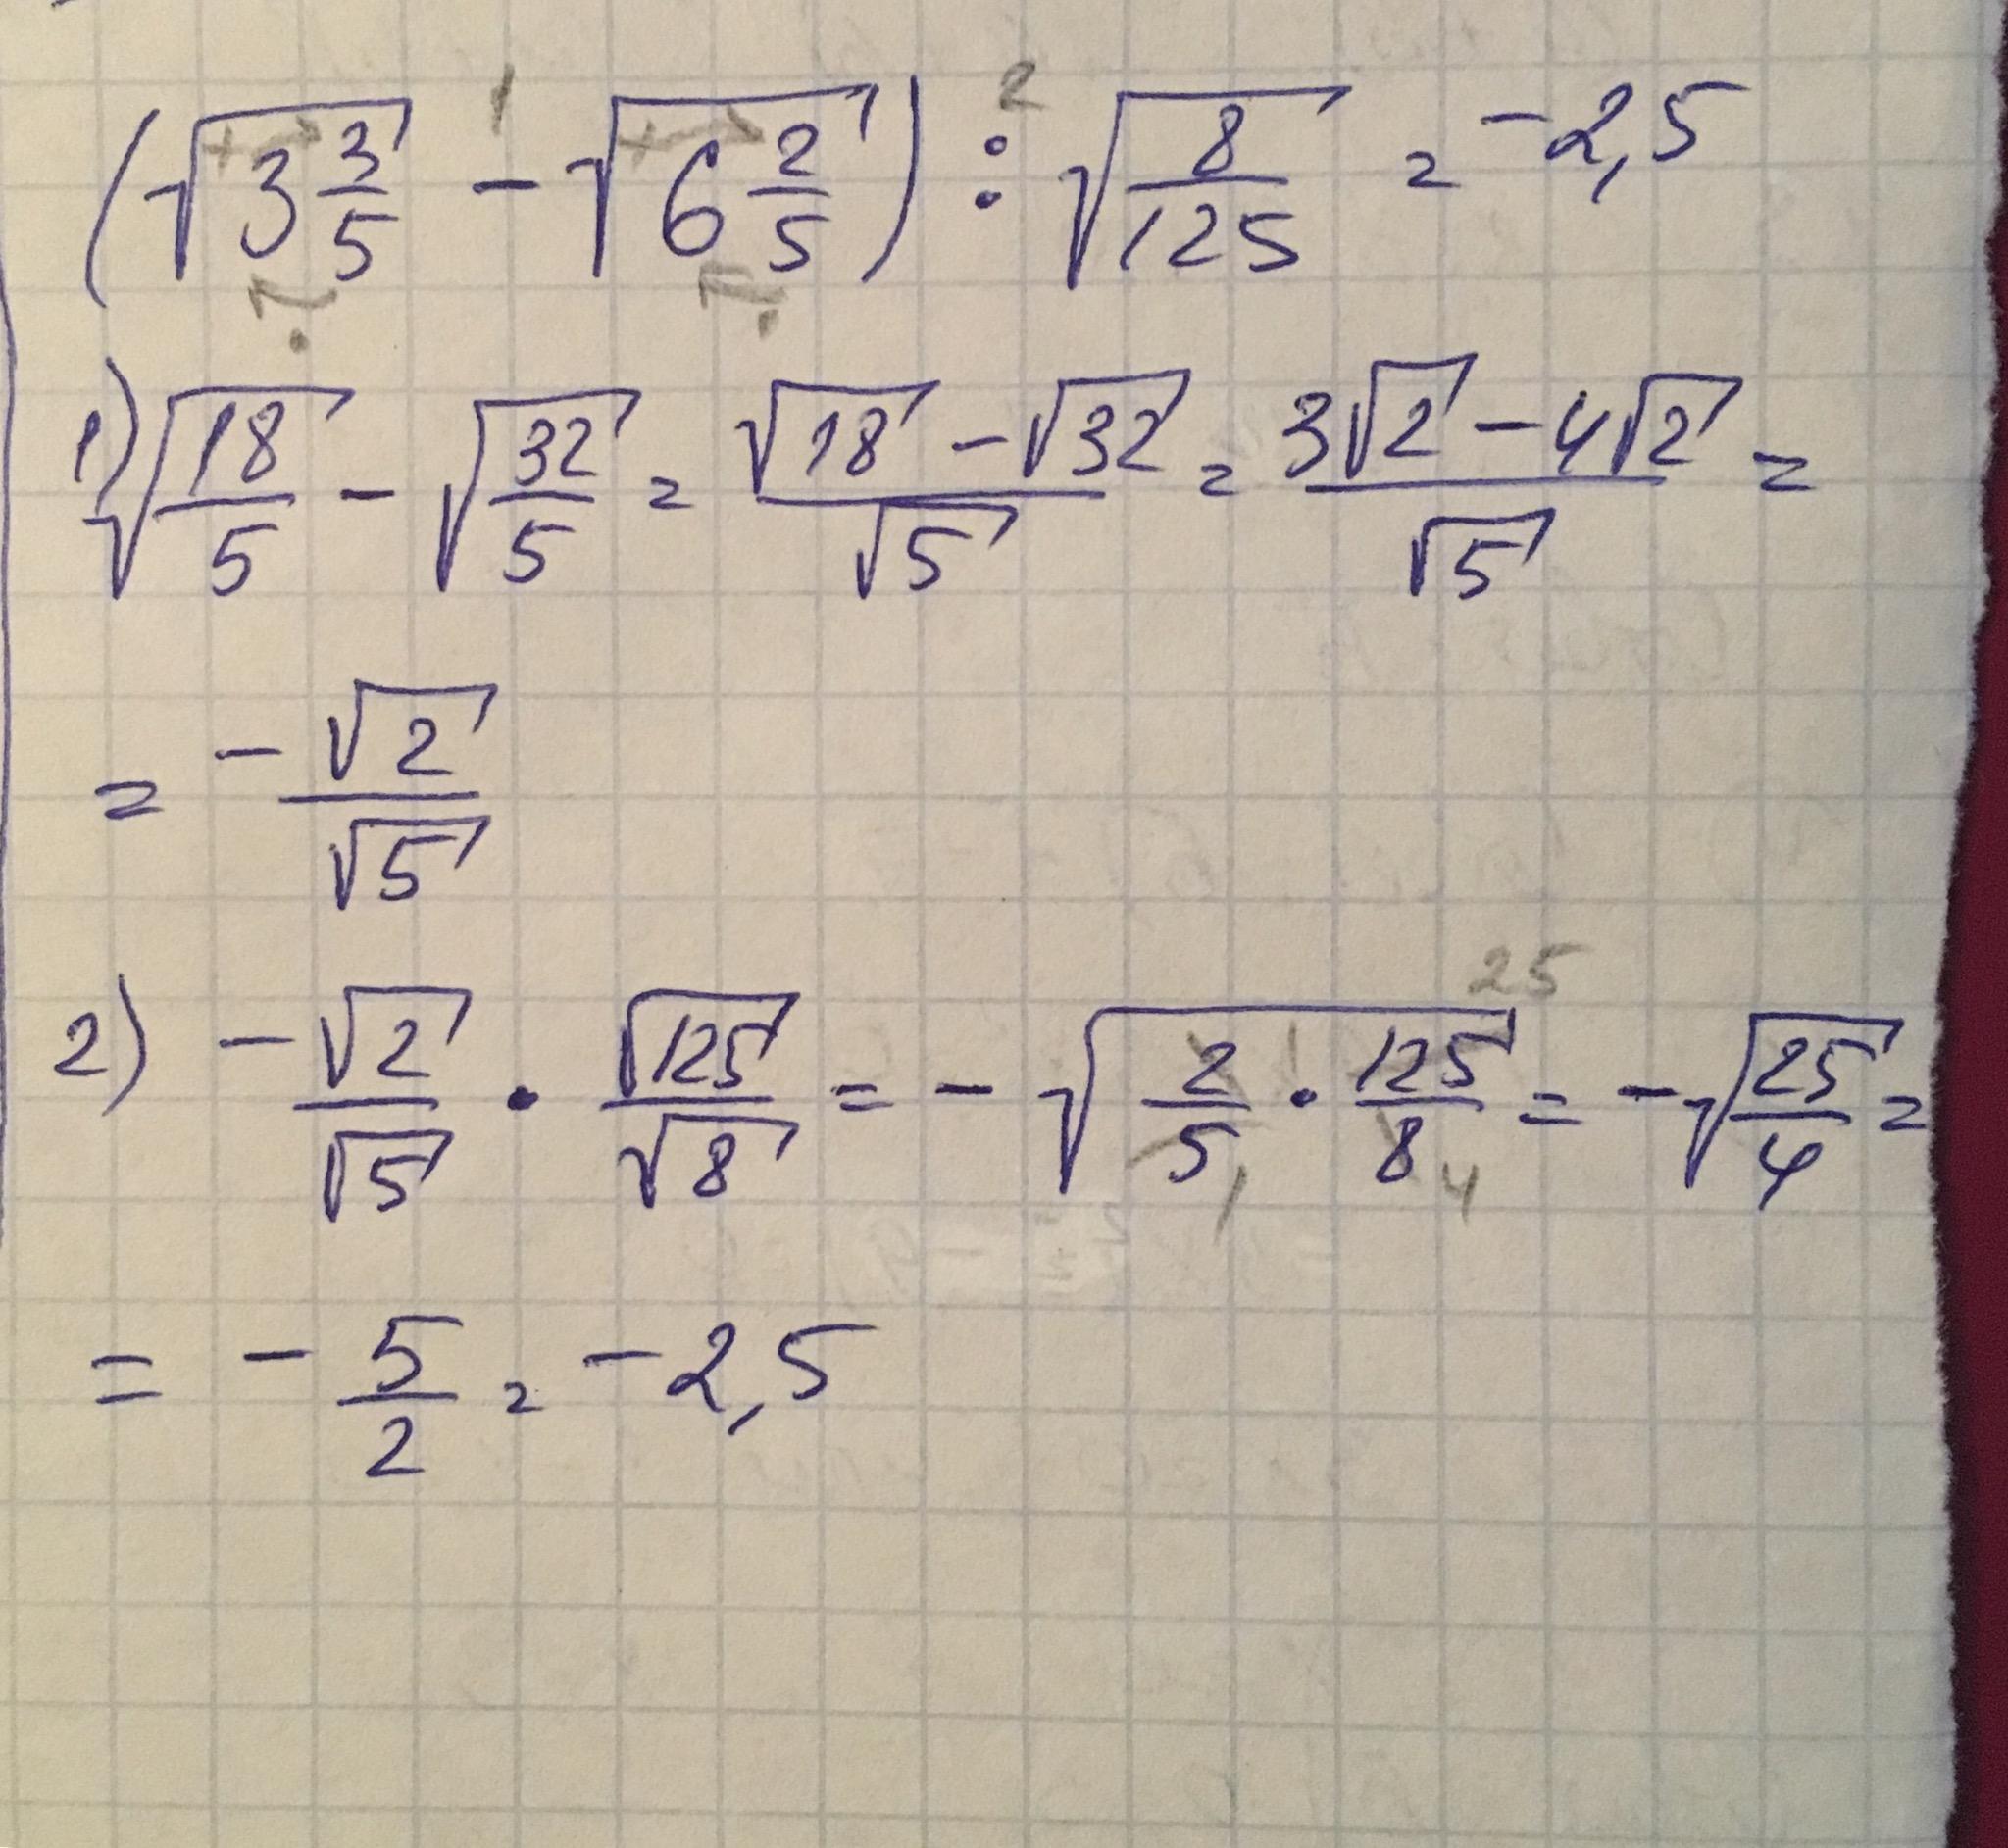 (√3 3/5 - √6 2/5) : √8/125 = -2,5
1) √18/5 - √32/5 = (√18 - √32)/√5 = (3√2 - 4√2)/√5 =
= -√2/√5
2) -√2/√5 · √125/√8 = -√(2/5 · 125/8) = -√25/4 =
= -5/2 = -2,5